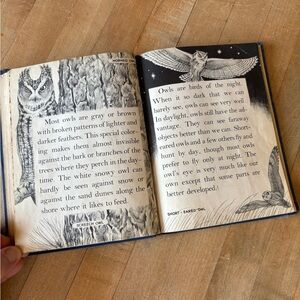 HORNED OWL
Most owls are gray or brown
with broken patterns of lighter and
darker feathers. This special color-
ing makes them almost invisible
against the bark or branches of the
trees where they perch in the day-
time. The white snowy owl can
hardly be seen against snow or
against the sand dunes along the
shore where it likes to feed.
SCREECH OWL
Owls are birds of the night.
When it is so dark that we can
barely see, owls can see very well.
In daylight, owls still have the ad-
vantage. They can see faraway
objects better than we can. Short-
eared owls and a few others fly and
hunt by day, though most owls
prefer to fly only at night. The
owl's eye is very much like our
own except that some parts are
better developed.
SHORT-EARED OWL